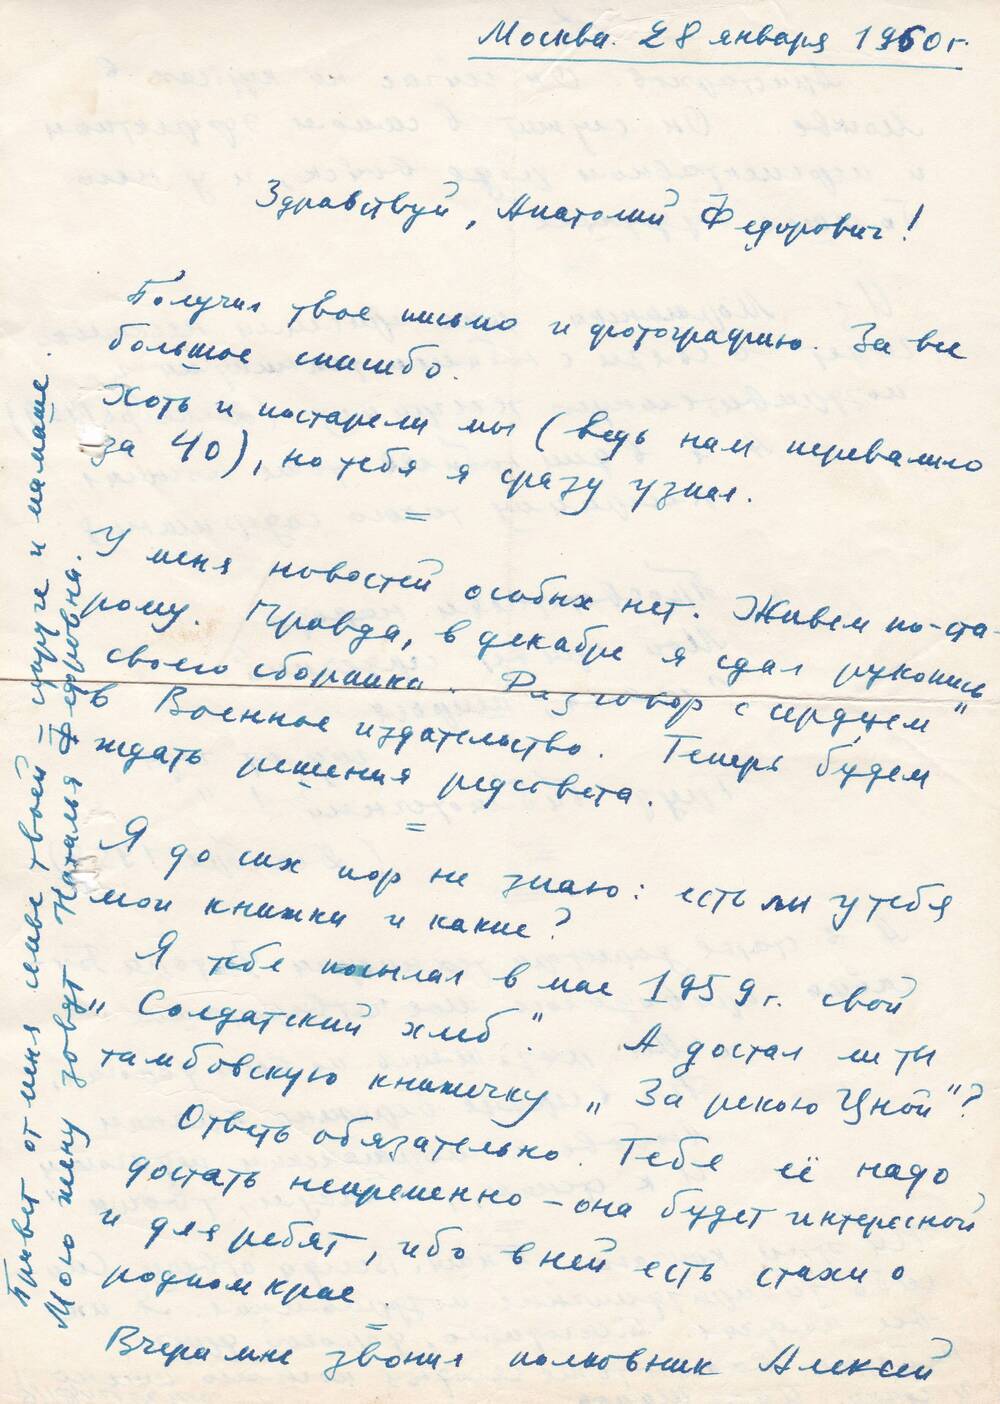 Москва. 28 января 1960 г.
Здравствуй, Анатолий Федорович!
Получил твое письмо и фотографию. За все
большое спасибо.
Хоть и постарели мы (ведь нам перевалило
за 40), но тебя я сразу узнал.
=
У меня новостей особых нет. Живем по-ста-
рому. Правда, в декабре я сдал рукопись
своего сборника „Разговор с сердцем"
в Военное издательство. Теперь будем
ждать решения редсовета.
=
Я до сих пор не знаю: есть ли у тебя
мои книжки и какие?
Я тебе посылал в мае 1959 г. свой
„Солдатский хлеб". А достал ли ты
тамбовскую книжечку „За рекою Цной"?
Ответь обязательно. Тебе её надо
достать непременно – она будет интересной
и для ребят, ибо в ней есть стахи о
родном крае.
=
Вчера мне звонил полковник Алексей
Привет от меня семье твоей – супруге и мамаше.
Мою жену зовут Наталья Федоровна.